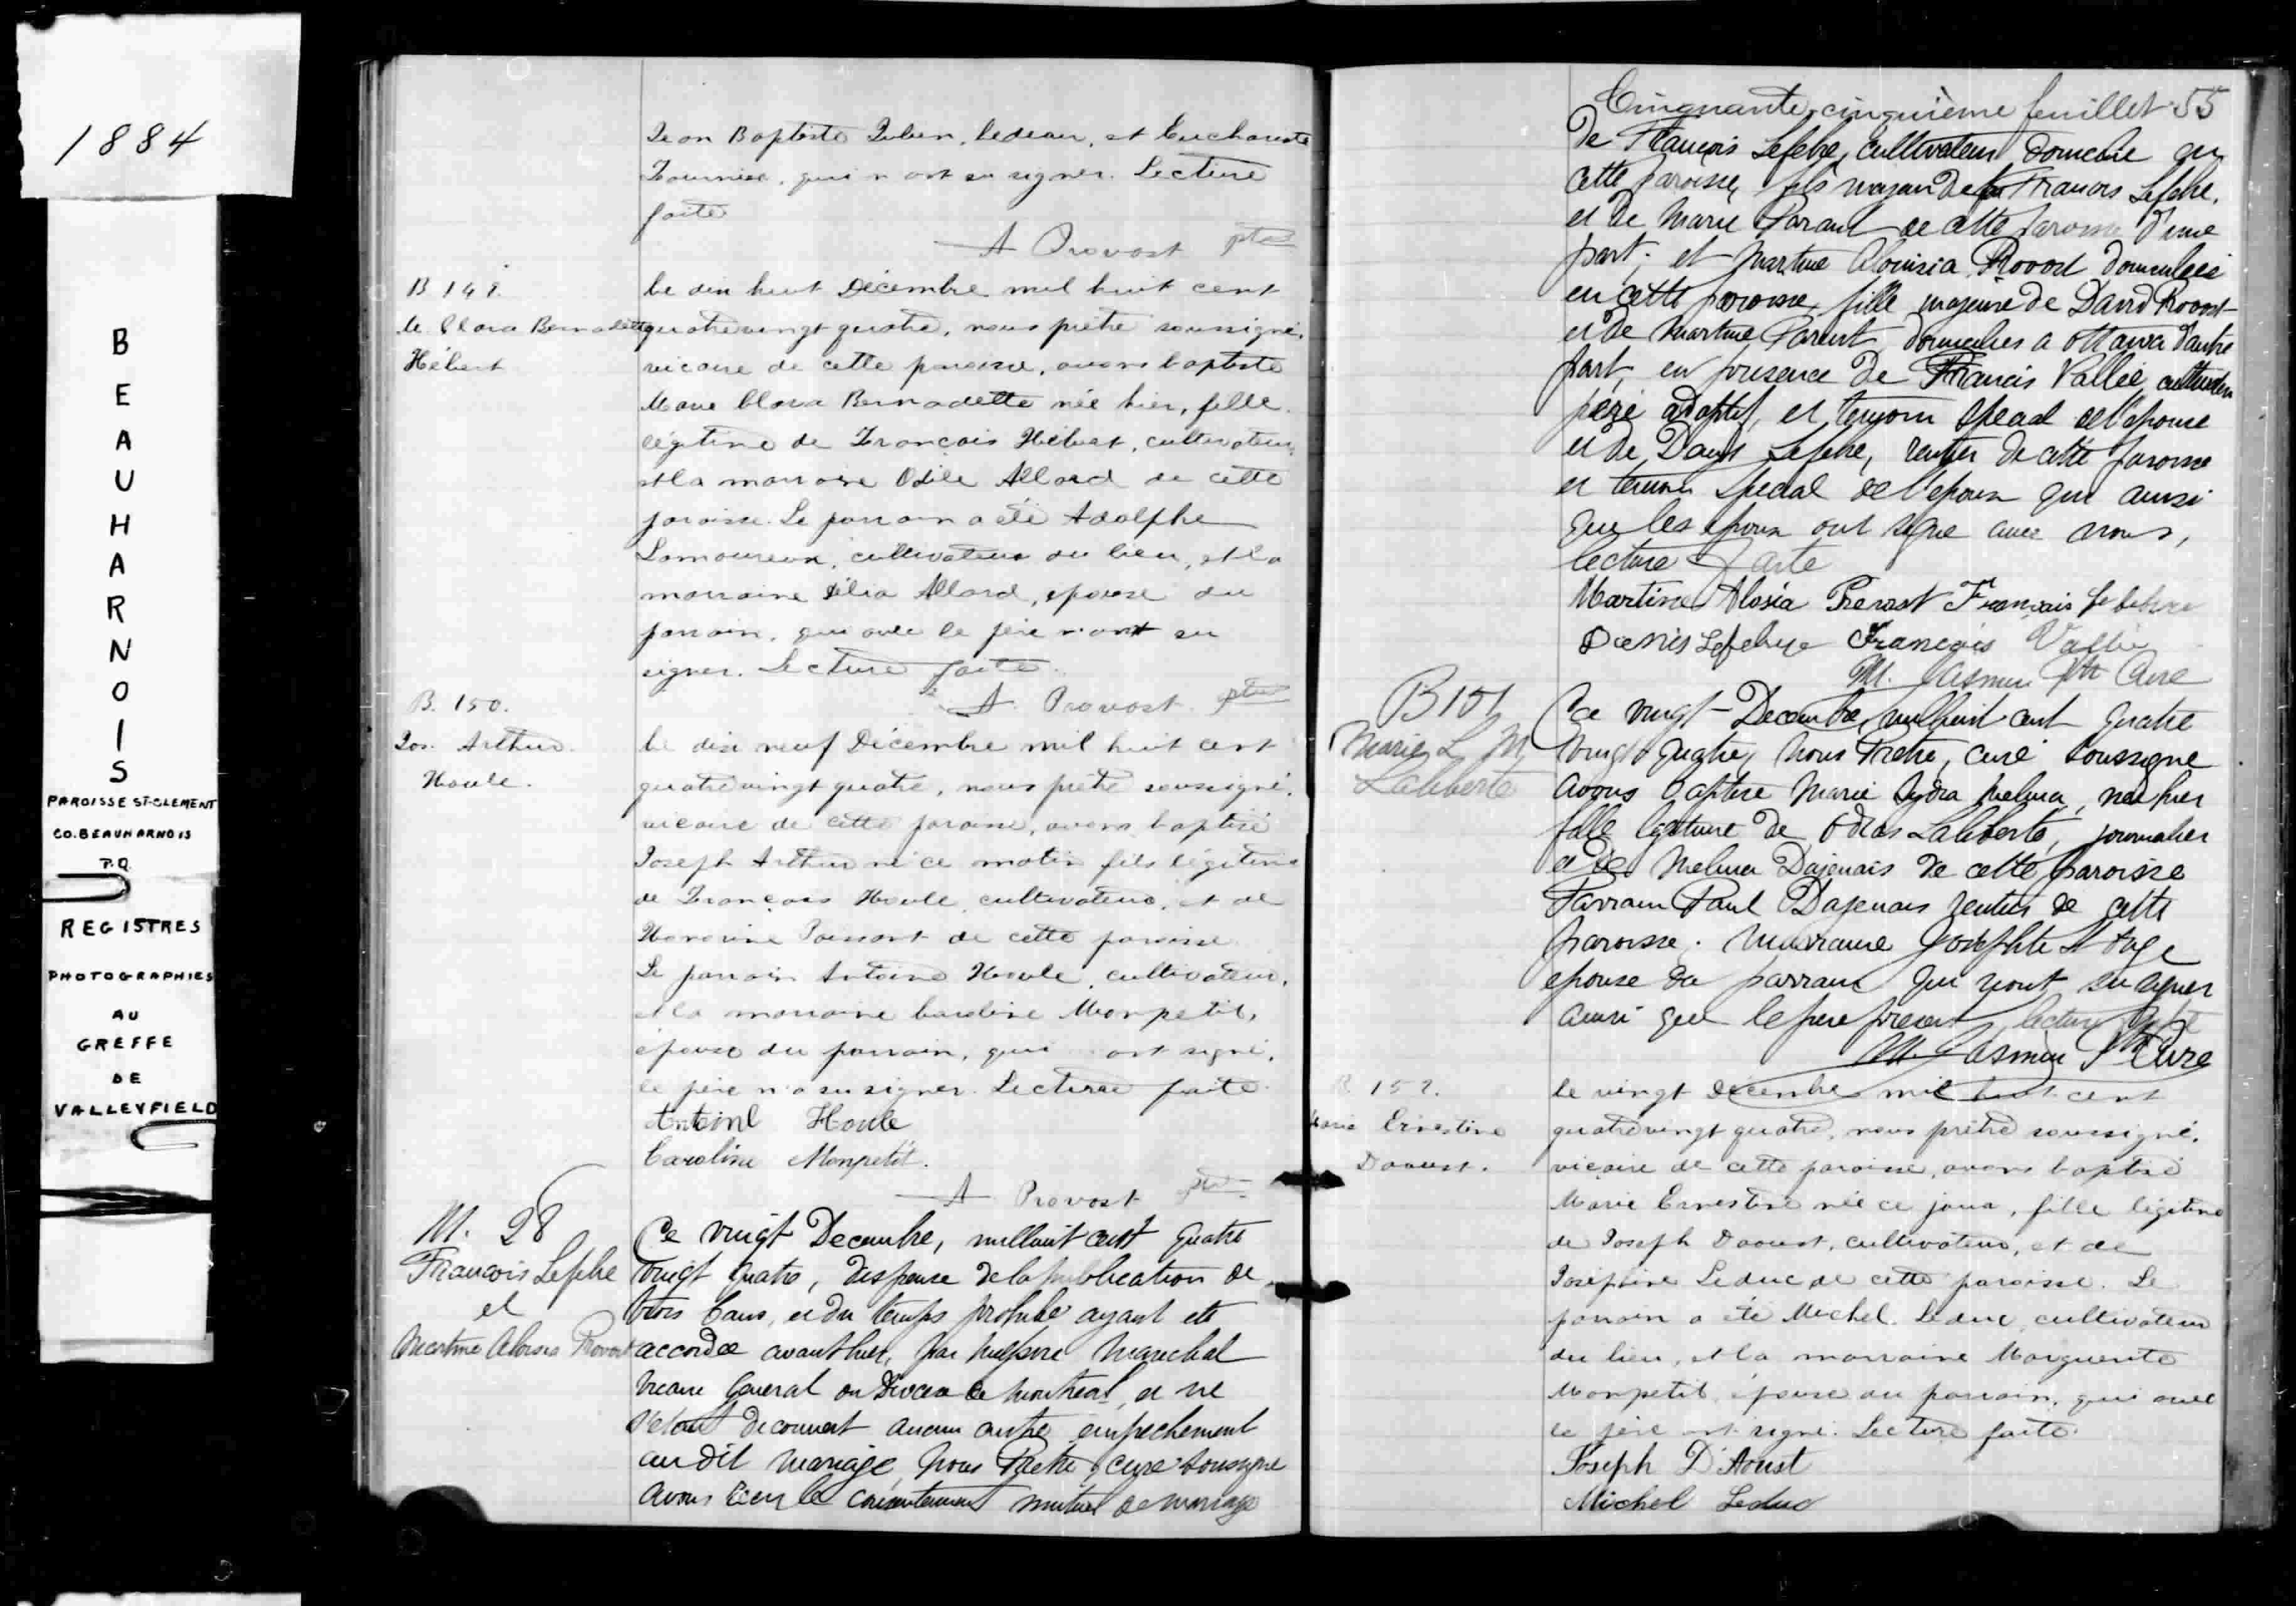 1884
BEAUHARNOIS
PAROISSE ST-CLEMENT
CO. BEAUHARNOIS
P.Q.
REGISTRES
PHOTOGRAPHIES
AU
GREFFE
DE
VALLEYFIELD
Jean Baptiste bedeau, et Euchariste
qui n'ont su signer. Lecture
faite
A Provost ptre
B 149.
M. Clara Bernadette
Hébert
Le dix huit Décembre mil huit cent
quatrevingt quatre, nous prêtre soussigné,
vicaire de cette paroisse, avons baptisé
Marie Clara Bernadette née hier, fille
légitime de François Hébert, cultivateur,
Odile Allard de cette
paroisse. Le parrain a été Adolphe
Lamoureux, cultivateur du lieu, et la
marraine Délia Allard, épouse du
parrain, qui avec le père n'ont su
signer. Lecture faite.
A. Provost ptre
B. 150.
Jos. Arthur
Houle.
Le dix neuf Décembre mil huit cent
quatrevingt quatre, nous prêtre soussigné,
vicaire de cette paroisse, avons baptisé
Joseph Arthur né ce matin fils légitime
de François Houle, cultivateur, et de
de cette paroisse
Le parrain Antoine Houle, cultivateur,
et la marraine Caroline Monpetit,
épouse du parrain, qui ont signé,
le père n'a su signer. Lecture faite.
Antoine Houle
Caroline Monpetit.
A Provost ptre
M. 28
François Lefebre
et
Martine Aloisia Provost
Ce vingt Decembre, mil huit cent quatre
vingt quatre, dispense de la publication de
trois bans, et du temps prohibé ayant été
accordée avant hier, par Marechal
Vicaire General du Diocese de Montreal, et ne
s'étant decouvert aucun autre empechement
au dit mariage, Nous Pretre, curé soussigné
avons recu le consentement mutuel de mariage
Cinquante cinquième feuillet 55
De François Lefebre, cultivateur domicilié en
cette paroisse, fils majeur de feu Francois Lefebre,
et de Marie Parant de cette paroisse d'une
part; et Martine Aloisia Provost domiciliée
en cette paroisse, fille majeure de David Provost
et de Martine Parent, domicilies a Ottawa d'autre
part, en presence de Francis Vallée, cultivateur
père adoptif, et temoin special de l'epouse
et de Denis Lefebre, rentier de cette paroisse
et temoin special de l'epoux qui aussi
que les epoux ont signé avec nous,
lecture faite
Martine Alosia Prevost François Lefebvre
Denis Lefebvre François Vallée
M. Jasmin Ptre Curé
B 151
Marie L M
Laliberte
Ce vingt Decembre, mil huit cent quatre
vingt quatre, Nous Pretre, curé soussigné
avons baptisé Marie Lydia Melina, née hier
fille legitime de Laliberté, journalier
et de Melina Dajenais de cette paroisse
Parrain Paul Dajenais rentier de cette
paroisse. Marraine Josephte St Onge
epouse du parrain qui n'ont su signer
ainsi que le pere present, lecture faite
M. Jasmin Ptre Curé
B 152.
Marie Ernestine
Daoust.
Le vingt décembre mil huit cent
quatrevingt quatre, nous prêtre soussigné,
vicaire de cette paroisse, avons baptisé
Marie Ernestine née ce jour, fille légitime
de Joseph Daoust, cultivateur, et de
Joséphine Leduc de cette paroisse. Le
parrain a été Michel Leduc, cultivateur
du lieu, et la marraine Marguerite
Monpetit, épouse du parrain, qui avec
le père ont signé. Lecture faite.
Joseph D'Aoust
Michel Leduc